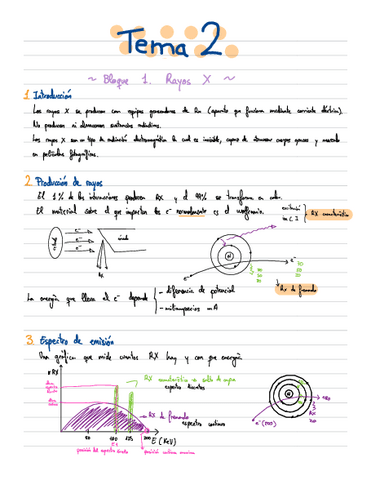 Tema 2
~ Bloque 1. Rayos X ~
1. Introducción
Los rayos X se producen con equipos generadores de Rx (aparato que funciona mediante corriente eléctrica).
No producen ni almacenan sustancias radiactivas.
Los rayos X son un tipo de radiación electromagnética la cual es invisible, capaz de atravesar cuerpos opacos y
en películas fotográficas.
2. Producción de rayos
El 1% de las interacciones producen RX y el 99% se transforma en calor.
El material sobre el que impactan los e⁻ normalmente es el wolframio.
RX característico
e⁻
e⁻
e⁻
ánodo
RX
e⁻
e⁻
Rx de frenado
La energía que lleva el e⁻ depende
- diferencia de potencial
- miliamperios mA
3. Espectro de emisión
Una gráfica que mide cuantos RX hay y con que energía.
nº RX
RX característico
espectro discreto
RX de frenado
espectro continuo
E (KeV)
posición del espectro discreto
posición continua máxima